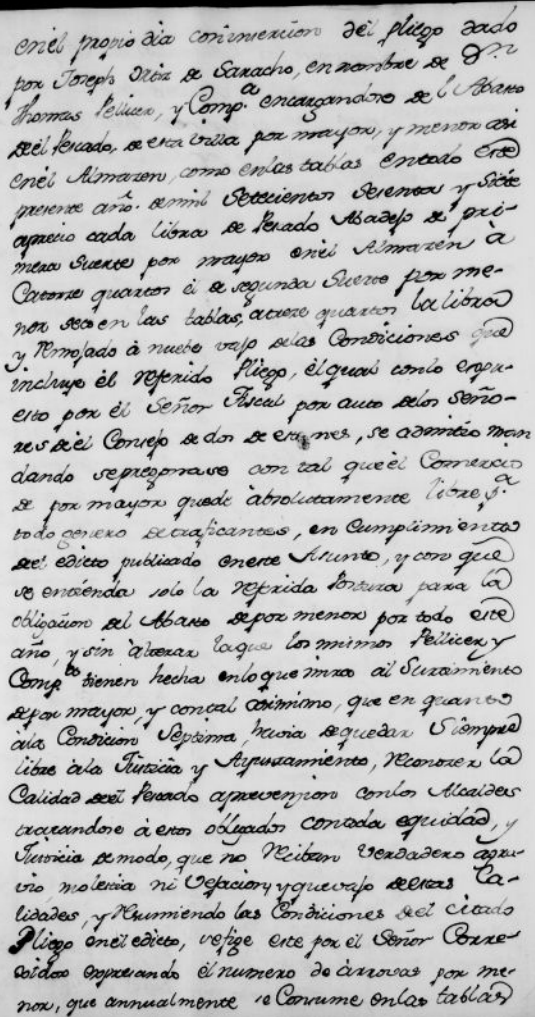 en el propio dia con insercion del pliego dado
por Joseph Ortiz de Saracho, en nombre de Dn
Thomas Pellicer, y Comp.a encargandose del Abasto
de el Pescado, de esta Villa por mayor, y menor asi
en el Almazen, como en las tablas en todo este
presente año. de mil Setecientos Sesenta y Siete
aprecio cada libra de Pescado Abadejo de pri-
mera Suerte por mayor en el Almazen à
Catorze quartos él de segunda Suerte por me-
nor seco en las tablas, a treze quartos la libra
y remojado à nuebe vajo de las Condiciones que
incluye el referido Pliego, él qual con lo expu-
esto por él Señor Fiscal por auto de los Seño-
res de él Consejo de dos de este mes, se admitio man
dando se pregonase con tal que él Comercio
de por mayor quede absolutamente libre p.a
todo genero de traficantes, en Cumplimiento
del edicto publicado en este Asunto, y con que
se entienda solo la referida Postura para la
obligacion del Abasto de por menor por todo este
año, y sin alterar la que los mismos Pellicer y
Comp.a tienen hecha en lo que mira al Surtimiento
de por mayor, y con tal asimismo, que en quanto
à la Condicion Septima, havia de quedar Siempre
libre à la Justicia y Ayuntamiento, reconozer la
Calidad de él Pescado aprevenzion con los Alcaldes
tratandose à estos obligados con toda equidad, y
Justicia de modo, que no reciban Verdadero agra-
vio, molestia ni Vejacion, y que vajo de estas Ca-
lidades, y resumiendo las Condiciones del citado
Pliego en el edicto, se fije este por él Señor Corre-
xidor expresando él numero de arrovas por me-
nor, que annualmente se Consume en las tablas